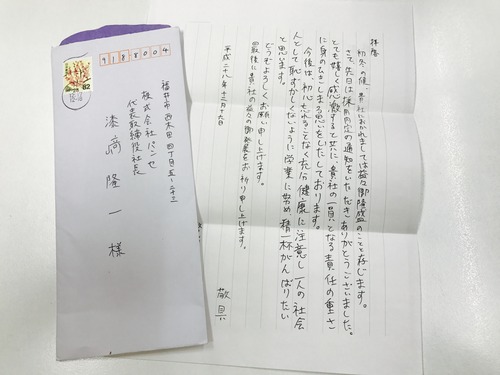 9188004
福井市西木田四丁目五-二十二
株式会社パンセ
代表取締役社長
漆崎隆一様
82
拝啓
初冬の候、貴社におかれましては益々御隆盛のことと存じます。
さて、先日は採用内定の通知をいただきありがとうございました。
とても嬉しく感激すると共に、貴社の一員となる責任の重さ
に身のひきしまる思いをしたしております。
今後は、初心忘れることなく充分健康に注意し一人の社会
人として恥ずかしくないように学業に努め精一杯がんばりたい
と思います。
どうぞよろしくお願い申し上げます。
最後に貴社の益々の御発展をお祈り申し上げます。
敬具
平成二八年十二月十九日